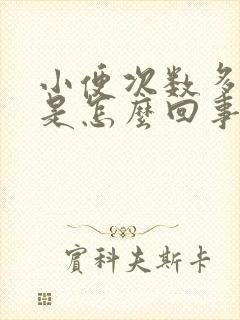 小便次数多
是怎麼回事
賓科夫斯卡